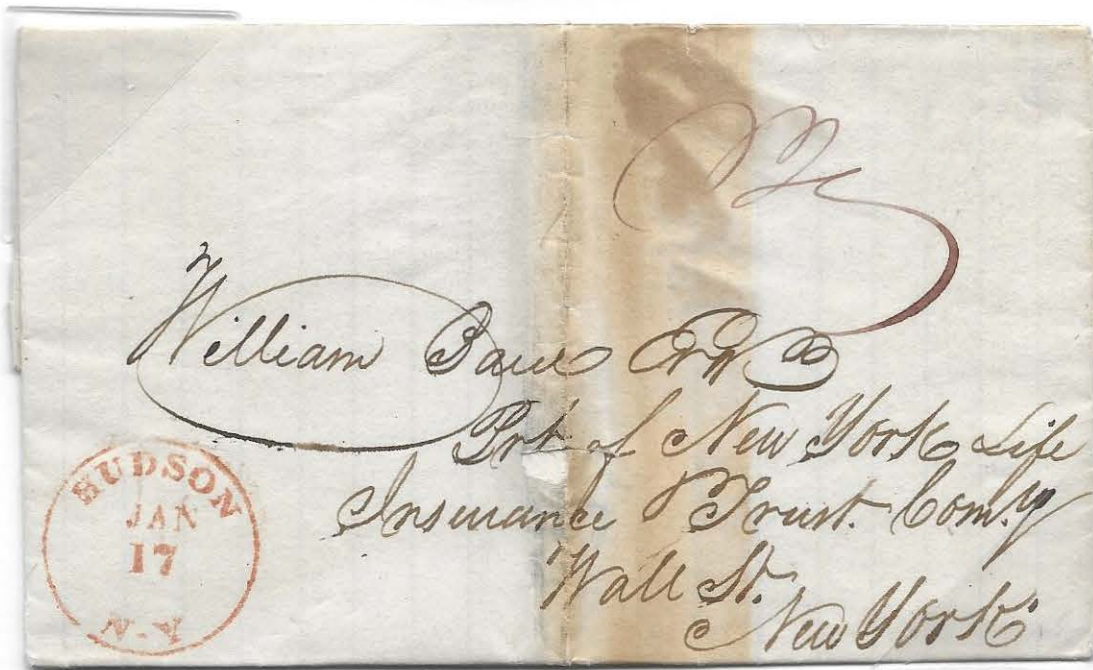 William Bard Esqr
Prt of New York Life
Insurance & Trust Comy
Wall St.
New York
HUDSON
JAN
17
N.Y